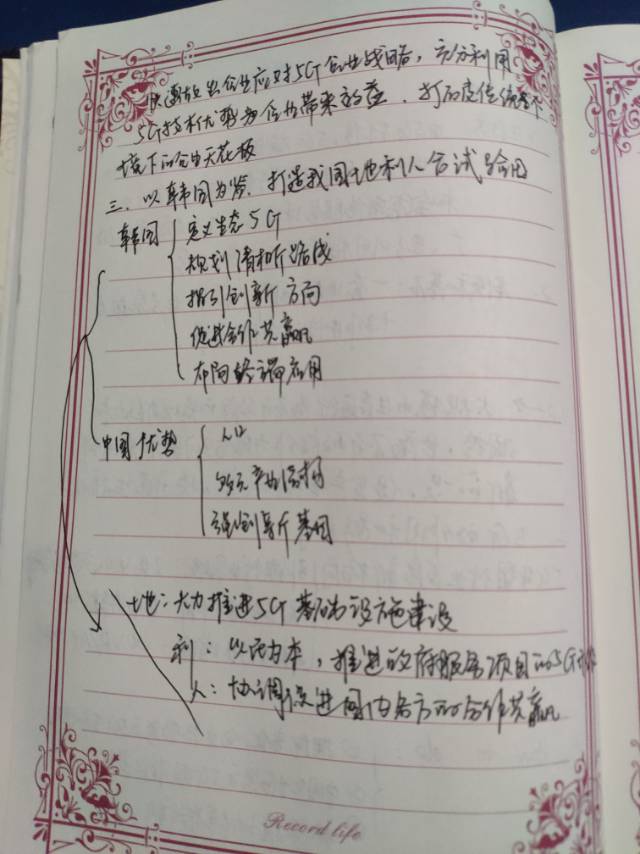 快速放出企业应对5G创业战略，充分利用
5G技术优势为企业带来效益，打
境下的天花板
三、以韩国为鉴，打造我国地利人合试验田
韩国 定义生态5G
规划清晰路线
指引创新方向
促进合作共赢
布局终端应用
中国优势 人口
多元
强创新基因
地：大力推进5G基础设施建设
利：以民为本，推进政府服务项目的5G
人：协调促进国内各方的合作共赢
Record life